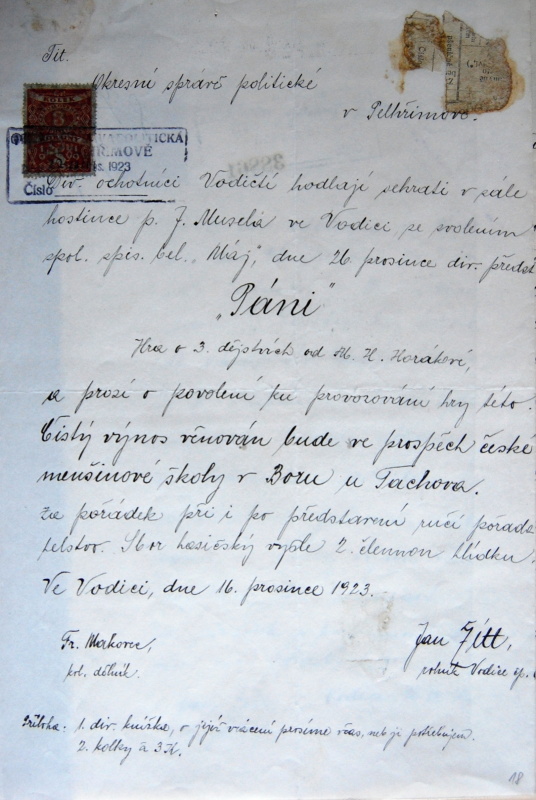 Tit.
Okresní správě politické
v Pelhřimově.
KOLEK
POLITICKÁ
1923
Číslo
Div. ochotníci Vodičtí hodlají sehrati v sále
hostince p. J. Muselá ve Vodici se svolením
spol. spis. bel. „Máj", dne 26 prosince div. předst
„Páni"
Hra o 3. dějstvích od M. H. Horákové,
a prosí o povolení ku provozování hry této.
Čistý výnos věnován bude ve prospěch české
menšinové školy v Boru u Tachova.
Za pořádek při i po představení ručí pořada
telstvo. Sbor hasičský vyšle 2. člennou hlídku.
Ve Vodici, dne 16. prosince 1923.
Fr. Makovec, Jan Zítt,
pol. dělník. rolník Vodice čp.
Příloha: 1. div. knížka, o jejíž vrácení prosíme včas, neb ji potřebujem.
2. kolky à 3 K.
18